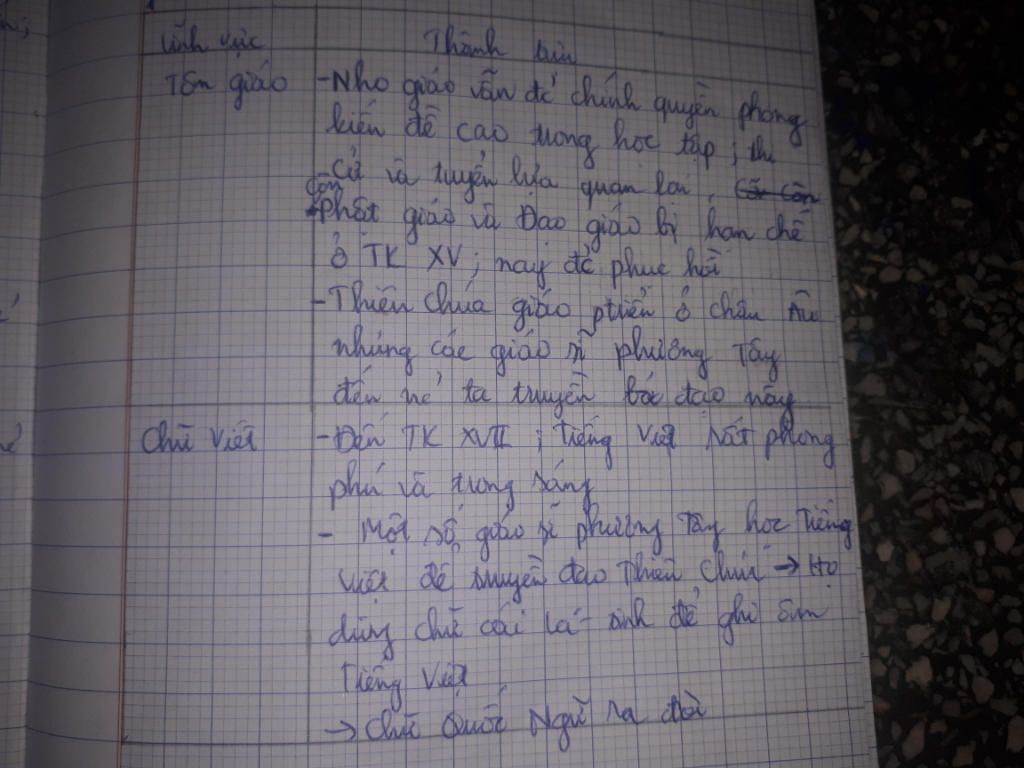 Lĩnh vực Thành tựu
Tôn giáo - Nho giáo vẫn đc chính quyền phong
kiến đề cao trong học tập ; thi
cử và tuyển lựa quan lại.
Còn phật giáo và Đạo giáo bị hạn chế
ở TK XV ; nay đc phục hồi
- Thiên chúa giáo ptriển ở châu Âu
nhưng các giáo sĩ phương Tây
đến nc ta truyền bá đạo này
Chữ viết - Đến TK XVII ; Tiếng Việt rất phong
phú và trong sáng
- Một số giáo sĩ phương Tây học Tiếng
Việt để truyền đạo Thiên Chúa → Họ
dùng chữ cái La - tinh để ghi âm
Tiếng Việt
→ Chữ Quốc Ngữ ra đời